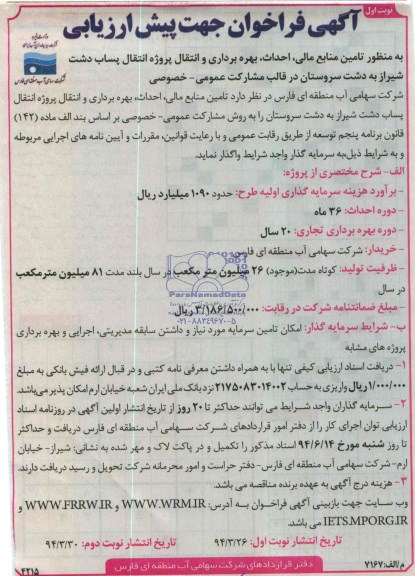 نوبت اول
آگهی فراخوان جهت پیش ارزیابی
وزارت نیرو
شرکت سهامی آب منطقه ای فارس
به منظور تامین منابع مالی، احداث، بهره برداری و انتقال پروژه انتقال پساب دشت
شیراز به دشت سروستان در قالب مشارکت عمومی - خصوصی
شرکت سهامی آب منطقه ای فارس در نظر دارد تامین منابع مالی، احداث، بهره برداری و انتقال پروژه انتقال
پساب دشت شیراز به دشت سروستان را به روش مشارکت عمومی- خصوصی بر اساس بند الف ماده (۱۴۲)
قانون برنامه پنجم توسعه از طریق رقابت عمومی و با رعایت قوانین، مقررات و آیین نامه های اجرایی مربوطه
و به شرایط ذیل به سرمایه گذار واجد شرایط واگذار نماید.
الف- شرح مختصری از پروژه:
- برآورد هزینه سرمایه گذاری اولیه طرح: حدود ۱۰۹۰ میلیارد ریال
- دوره احداث: ۳۶ ماه
- دوره بهره برداری تجاری: ۲۰ سال
- خریدار: شرکت سهامی آب منطقه ای فارس
- ظرفیت تولید: کوتاه مدت(موجود) ۲۶ میلیون متر مکعب در سال بلند مدت ۸۱ میلیون مترمکعب
در سال
- مبلغ ضمانتنامه شرکت در رقابت: ۳/۱۸۶/۵۰۰/۰۰۰ ریال
ParsNamadData
۰۲۱-۸۸۳۴۹۶۷۰-۵
ب- شرایط سرمایه گذار: امکان تامین سرمایه مورد نیاز و داشتن سابقه مدیریتی، اجرایی و بهره برداری
پروژه های مشابه
۱- دریافت اسناد ارزیابی کیفی تنها با به همراه داشتن معرفی نامه کتبی و در قبال ارائه فیش بانکی به مبلغ
۱/۰۰۰/۰۰۰ ریال واریزی به حساب ۲۱۷۵۰۸۳۰۱۴۰۰۲ نزد بانک ملی ایران شعبه خیابان ارم امکان پذیر می باشد.
۲- سرمایه گذاران واجد شرایط می توانند حداکثر تا ۲۰ روز از تاریخ انتشار اولین آگهی در روزنامه اسناد
ارزیابی توان اجرای کار را از دفتر امور قراردادهای شرکت سهامی آب منطقه ای فارس دریافت و حداکثر
تا روز شنبه مورخ ۹۴/۶/۱۴ اسناد مذکور را تکمیل و در پاکت لاک و مهر شده به نشانی: شیراز- خیابان
ارم- شرکت سهامی آب منطقه ای فارس- دفتر حراست و امور محرمانه شرکت تحویل و رسید دریافت دارند.
۳- هزینه درج آگهی به عهده برنده مناقصه می باشد.
وب سایت جهت بازبینی آگهی فراخوان به آدرس: WWW.WRM.IR و WWW.FRRW.IR و
IETS.MPORG.IR می باشد.
تاریخ انتشار نوبت اول: ۹۴/۳/۲۶ تاریخ انتشار نوبت دوم: ۹۴/۳/۳۰
م/الف: ۷۱۶۷
دفتر قراردادهای شرکت سهامی آب منطقه ای فارس
۴۲۱۵